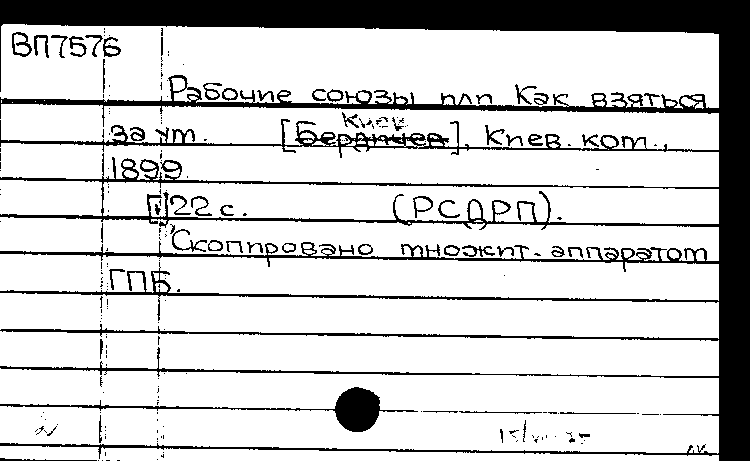 ВП7576
Рабочие союзы или Как взяться
за ут. [Бердичев], Киев. ком.,
Киев
1899.
22 с. (РСДРП).
Скопировано множит. аппаратом
ГПБ.